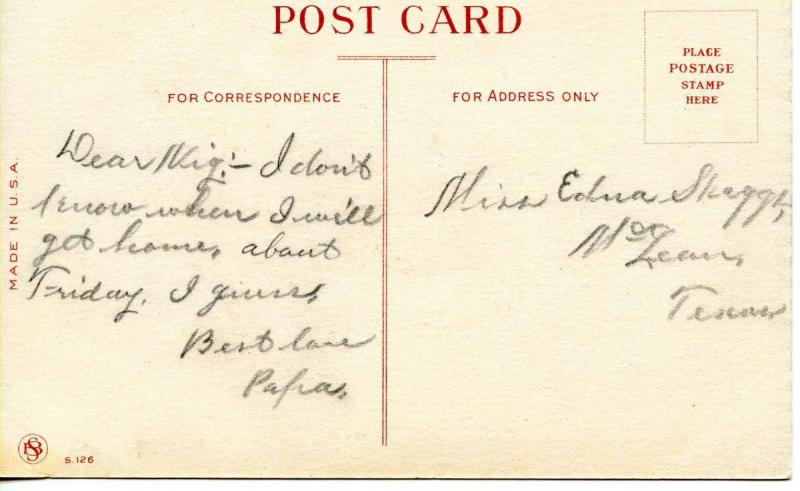 POST CARD
FOR CORRESPONDENCE
FOR ADDRESS ONLY
PLACE
POSTAGE
STAMP
HERE
MADE IN U.S.A.
Dear :– I don't
know when I will
get home, about
Friday, I guess,
Best love
Papa.
Miss Edna Skaggs,
McLean,
Texas
S.126